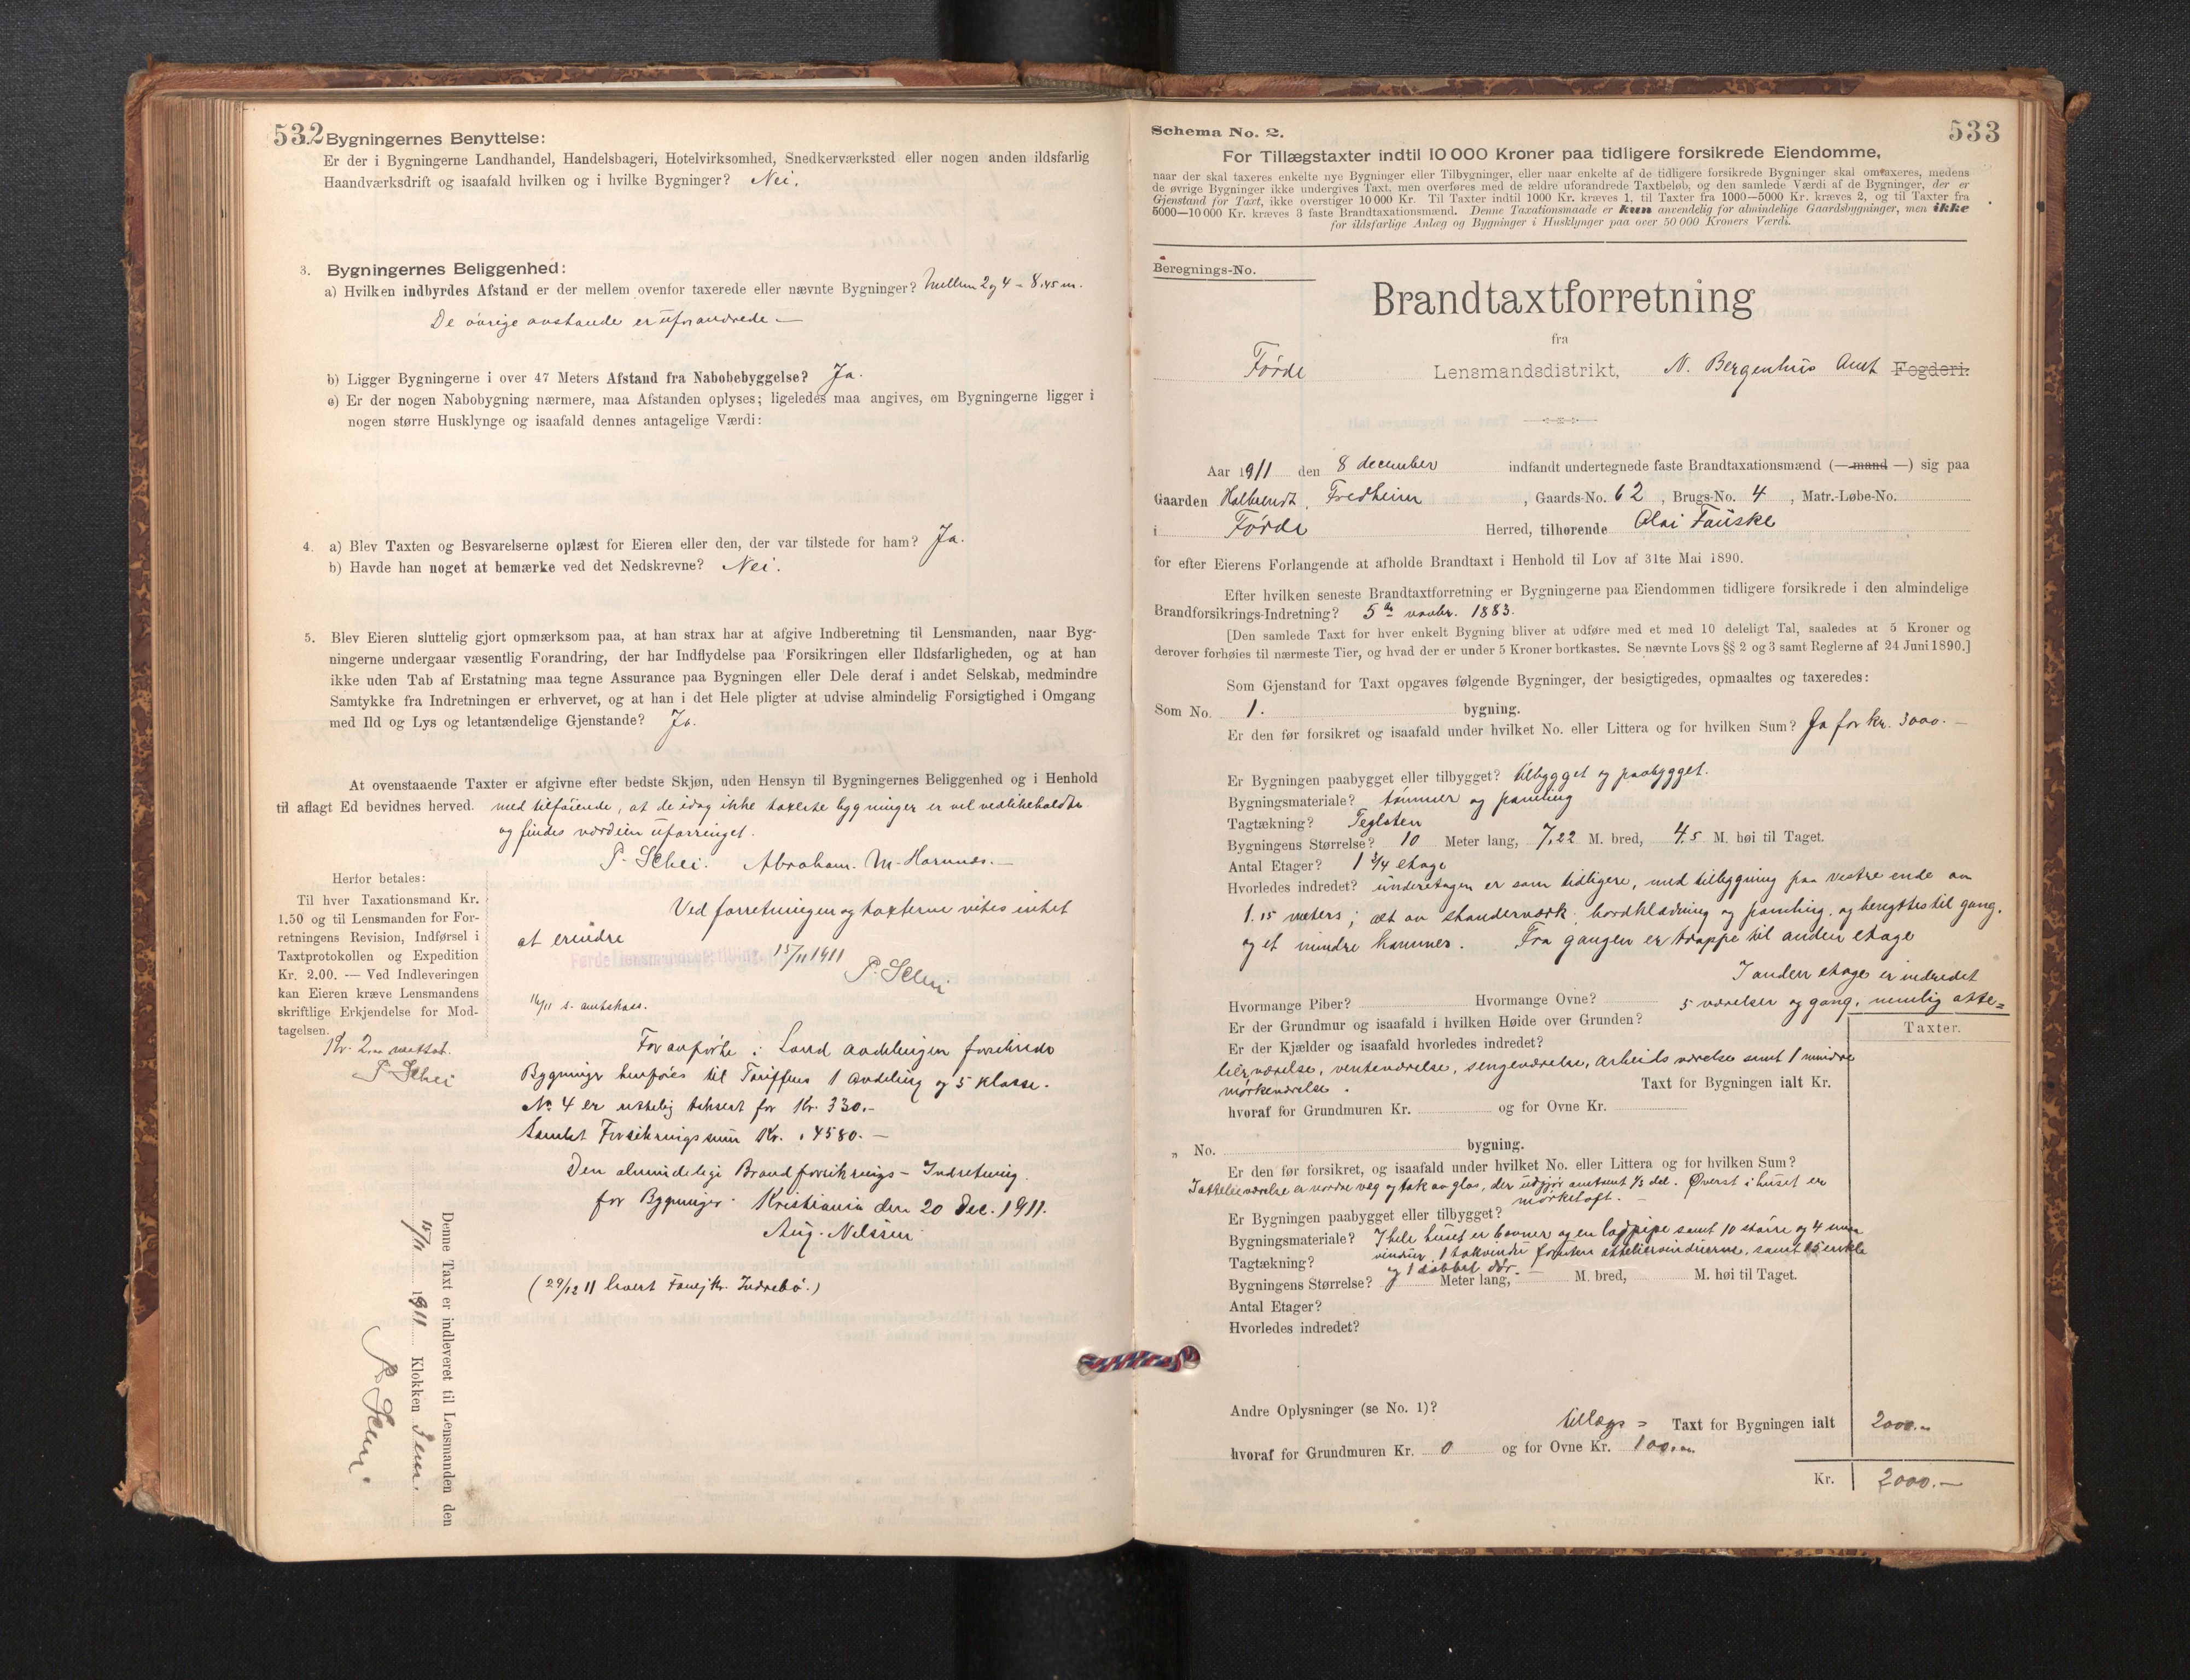 532
Bygningernes Benyttelse:
Er der i Bygningerne Landhandel, Handelsbageri, Hotelvirksomhed, Snedkerværksted eller nogen anden ildsfarlig
Haandværksdrift og isaafald hvilken og i hvilke Bygninger? Nei.
3. Bygningernes Beliggenhed:
a) Hvilken indbyrdes Afstand er der mellem ovenfor taxerede eller nævnte Bygninger? Mellem 2 og 4 = 8,45 m.
De øvrige avstande er uforandrede —
b) Ligger Bygningerne i over 47 Meters Afstand fra Nabobebyggelse? Ja.
c) Er der nogen Nabobygning nærmere, maa Afstanden oplyses; ligeledes maa angives, om Bygningerne ligger i
nogen større Husklynge og isaafald dennes antagelige Værdi:
4. a) Blev Taxten og Besvarelserne oplæst for Eieren eller den, der var tilstede for ham? Ja.
b) Havde han noget at bemærke ved det Nedskrevne? Nei.
5. Blev Eieren sluttelig gjort opmærksom paa, at han strax har at afgive Indberetning til Lensmanden, naar Byg-
ningerne undergaar væsentlig Forandring, der har Indflydelse paa Forsikringen eller Ildsfarligheden, og at han
ikke uden Tab af Erstatning maa tegne Assurance paa Bygningen eller Dele deraf i andet Selskab, medmindre
Samtykke fra Indretningen er erhvervet, og at han i det Hele pligter at udvise almindelig Forsigtighed i Omgang
med Ild og Lys og letantændelige Gjenstande? Ja.
At ovenstaaende Taxter er afgivne efter bedste Skjøn, uden Hensyn til Bygningernes Beliggenhed og i Henhold
til aflagt Ed bevidnes herved. med tilføiende, at de idag ikke taxerte bygninger er vel vedlikeholdte
og findes værdien uforringet.
P. Schei. Abraham. M. Hornnes. —
Herfor betales:
Til hver Taxationsmand Kr.
1.50 og til Lensmanden for For-
retningens Revision, Indførsel i
Taxtprotokollen og Expedition
Kr. 2.00. — Ved Indleveringen
kan Eieren kræve Lensmandens
skriftlige Erkjendelse for Mod-
tagelsen.
Kr. 2,00 mottat.
P. Schei
Ved forretningen og taxterne vites intet
at erindre
Førde lensmandsbestilling 15/11 1911
P. Schei
16/11 s. amtskass.
Foranførte i Land avdelingen forsikrede
Bygninger henføres til Tariffens 1 avdeling og 5 klasse.
No 4 er rettelig taksert for Kr. 330.-
Samlet Forsikringssum Kr. 4580. —
Den almindelige Brandforsikrings-Indretning
for Bygninger. Kristiania den 20 Dec. 1911.
Aug. Nilssen
(29/12 11 levert Indrebø.)
Denne Taxt er indleveret til Lensmanden den
15/11 1911 Klokken
P. Schei
533
Schema No. 2.
For Tillægstaxter indtil 10 000 Kroner paa tidligere forsikrede Eiendomme,
naar der skal taxeres enkelte nye Bygninger eller Tilbygninger, eller naar enkelte af de tidligere forsikrede Bygninger skal omtaxeres, medens
de øvrige Bygninger ikke undergives Taxt, men overføres med de ældre uforandrede Taxtbeløb, og den samlede Værdi af de Bygninger, der er
Gjenstand for Taxt, ikke overstiger 10 000 Kr. Til Taxter indtil 1000 Kr. kræves 1, til Taxter fra 1000—5000 Kr. kræves 2, og til Taxter fra
5000—10 000 Kr. kræves 3 faste Brandtaxationsmænd. Denne Taxationsmaade er kun anvendelig for almindelige Gaardsbygninger, men ikke
for ildsfarlige Anlæg og Bygninger i Husklynger paa over 50 000 Kroners Værdi.
Beregnings-No.
Brandtaxtforretning
fra
Førde Lensmandsdistrikt, N. Bergenhus Amt Fogderi.
Aar 1911 den 8 december indfandt undertegnede faste Brandtaxationsmænd (— mand —) sig paa
Gaarden Halbrendt, Fredheim, Gaards-No. 62, Brugs-No. 4, Matr.-Løbe-No.
i Førde Herred, tilhørende Olai Fauske
for efter Eierens Forlangende at afholde Brandtaxt i Henhold til Lov af 31te Mai 1890.
Efter hvilken seneste Brandtaxtforretning er Bygningerne paa Eiendommen tidligere forsikrede i den almindelige
Brandforsikrings-Indretning? 5te novbr. 1883.
[Den samlede Taxt for hver enkelt Bygning bliver at udføre med et med 10 deleligt Tal, saaledes at 5 Kroner og
derover forhøies til nærmeste Tier, og hvad der er under 5 Kroner bortkastes. Se nævnte Lovs §§ 2 og 3 samt Reglerne af 24 Juni 1890.]
Som Gjenstand for Taxt opgaves følgende Bygninger, der besigtigedes, opmaaltes og taxeredes:
Som No. 1. bygning.
Er den før forsikret og isaafald under hvilket No. eller Littera og for hvilken Sum? Ja for kr. 3000. —
Er Bygningen paabygget eller tilbygget? tilbygget og paabygget.
Bygningsmateriale? tømmer og panling
Tagtækning? Teglsten
Bygningens Størrelse? 10 Meter lang, 7,22 M. bred, 4,5 M. høi til Taget.
Antal Etager? 1 3/4 etage
Hvorledes indredet? underetagen er som tidligere, med tilbygning paa vestre ende av
1.15 meters; alt av standerværk, bordklædning og panling, og benyttes til gang,
og et mindre kammer. Fra gangen er trappe til anden etage
I anden etage er indredet
Hvormange Piber? Hvormange Ovne? 5 værelser og gang, nemlig atte=
Er der Grundmur og isaafald i hvilken Høide over Grunden?
Taxter.
Er der Kjælder og isaafald hvorledes indredet?
lierværelse, venteværelse, sengeværelse, arbeidsværelse samt 1 mindre
mørkeværelse. Taxt for Bygningen ialt Kr.
hvoraf for Grundmuren Kr. og for Ovne Kr.
" No. bygning.
Er den før forsikret, og isaafald under hvilket No. eller Littera og for hvilken Sum?
I attelieværelse er nordre væg og tak av glas, der udgjør omtrent 1/3 del. Øverst i huset er
mørkeloft. —
Er Bygningen paabygget eller tilbygget?
Bygningsmateriale? I hele huset er 6 ovner og en pipe samt 10 større og 4 mindre
Tagtækning? vinduer, 1 takvindu foruten attelievinduerne, samt 15 enkle
og 1 dobbet dør. —
Bygningens Størrelse? Meter lang, M. bred, M. høi til Taget.
Antal Etager?
Hvorledes indredet?
Andre Oplysninger (se No. 1)?
tillægs = Taxt for Bygningen ialt 2000.—
hvoraf for Grundmuren Kr. 0 og for Ovne Kr. 100.—
Kr. 2000.—